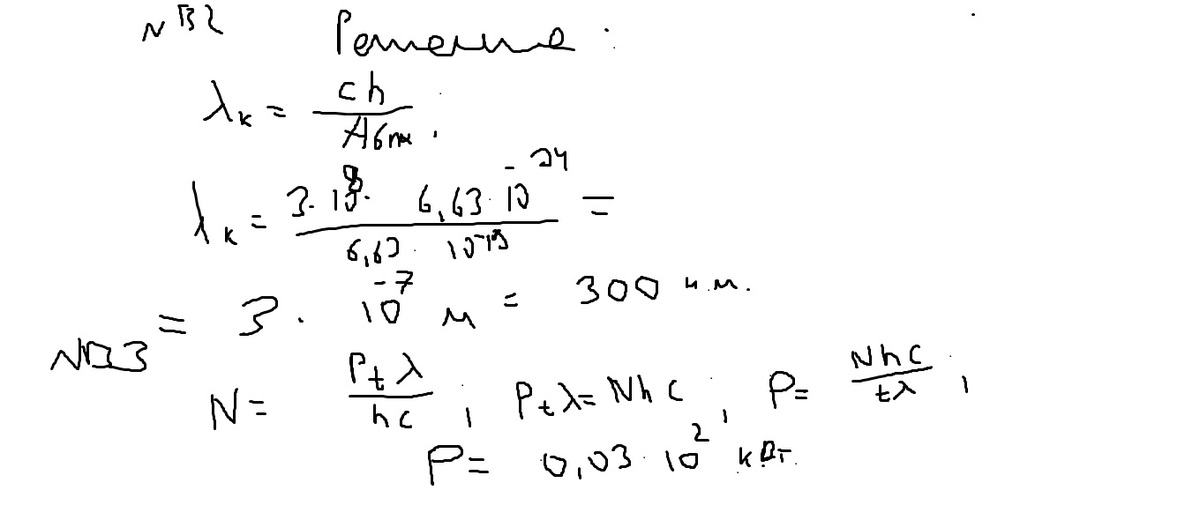 № B2 Решение:
λк = ch / Aвых.
λк = 3·10⁸· 6,63·10⁻³⁴ / 6,63·10⁻¹⁹ =
= 3·10⁻⁷ м = 300 н.м.
№B3
N = Ptλ / hc, Ptλ = Nhc, P = Nhc / tλ,
P = 0,03·10² кВт.